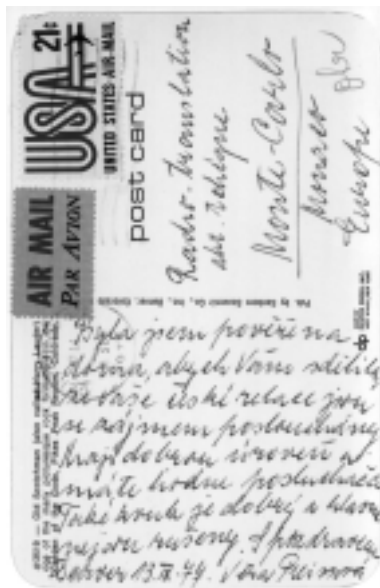 USA 21c
UNITED STATES AIR MAIL
AIR MAIL
PAR AVION
post card
Radio-translation
Monte-Carlo
Monaco
Europe
Byla jsem pověřena
doma, abych Vám sdělila,
že Vaše české relace jsou
se zájmem poslouchány
mají dobrou úroveň a
máte hodně posluchačů
Také zvuk je dobrý a hlavně
nejsou rušeny. S pozdravem
Denver 13. 74. Věra